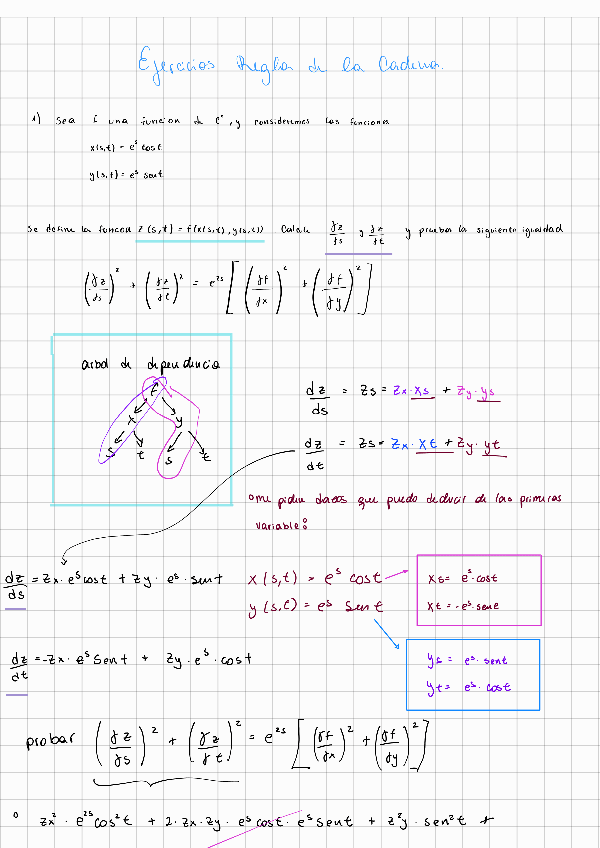 Ejercicios Regla de la Cadena.
1) Sea f una funcion de C¹, y consideremos las funciones
x(s,t) = e^s cost
y(s,t) = e^s sent
Se define la funcion z(s,t) = f(x(s,t), y(s,t)) Calcule ∂z/∂s y ∂z/∂t y pruebe la siguiente igualdad
(∂z/∂s)² + (∂z/∂t)² = e^2s [(∂f/∂x)² + (∂f/∂y)²]
arbol de dependencia
z
x y
s t s t
dz/ds = Zs = Zx·Xs + Zy·ys
dz/dt = Zs = Zx·Xt + Zy·yt
ome piden datos que puedo deducir de las primeras
variable:
dz/ds = Zx·e^s cost + Zy·e^s·sent
x(s,t) = e^s cost
y(s,t) = e^s sent
Xs = e^s·cost
Xt = -e^s·sent
dz/dt = -Zx·e^s sent + Zy·e^s·cost
ys = e^s·sent
yt = e^s·cost
probar (∂z/∂s)² + (∂z/∂t)² = e^2s [(∂f/∂x)² + (∂f/∂y)²]
o Zx²·e^2s cos²t + 2·Zx·Zy·e^s cost·e^s sent + z²y·sen²t +